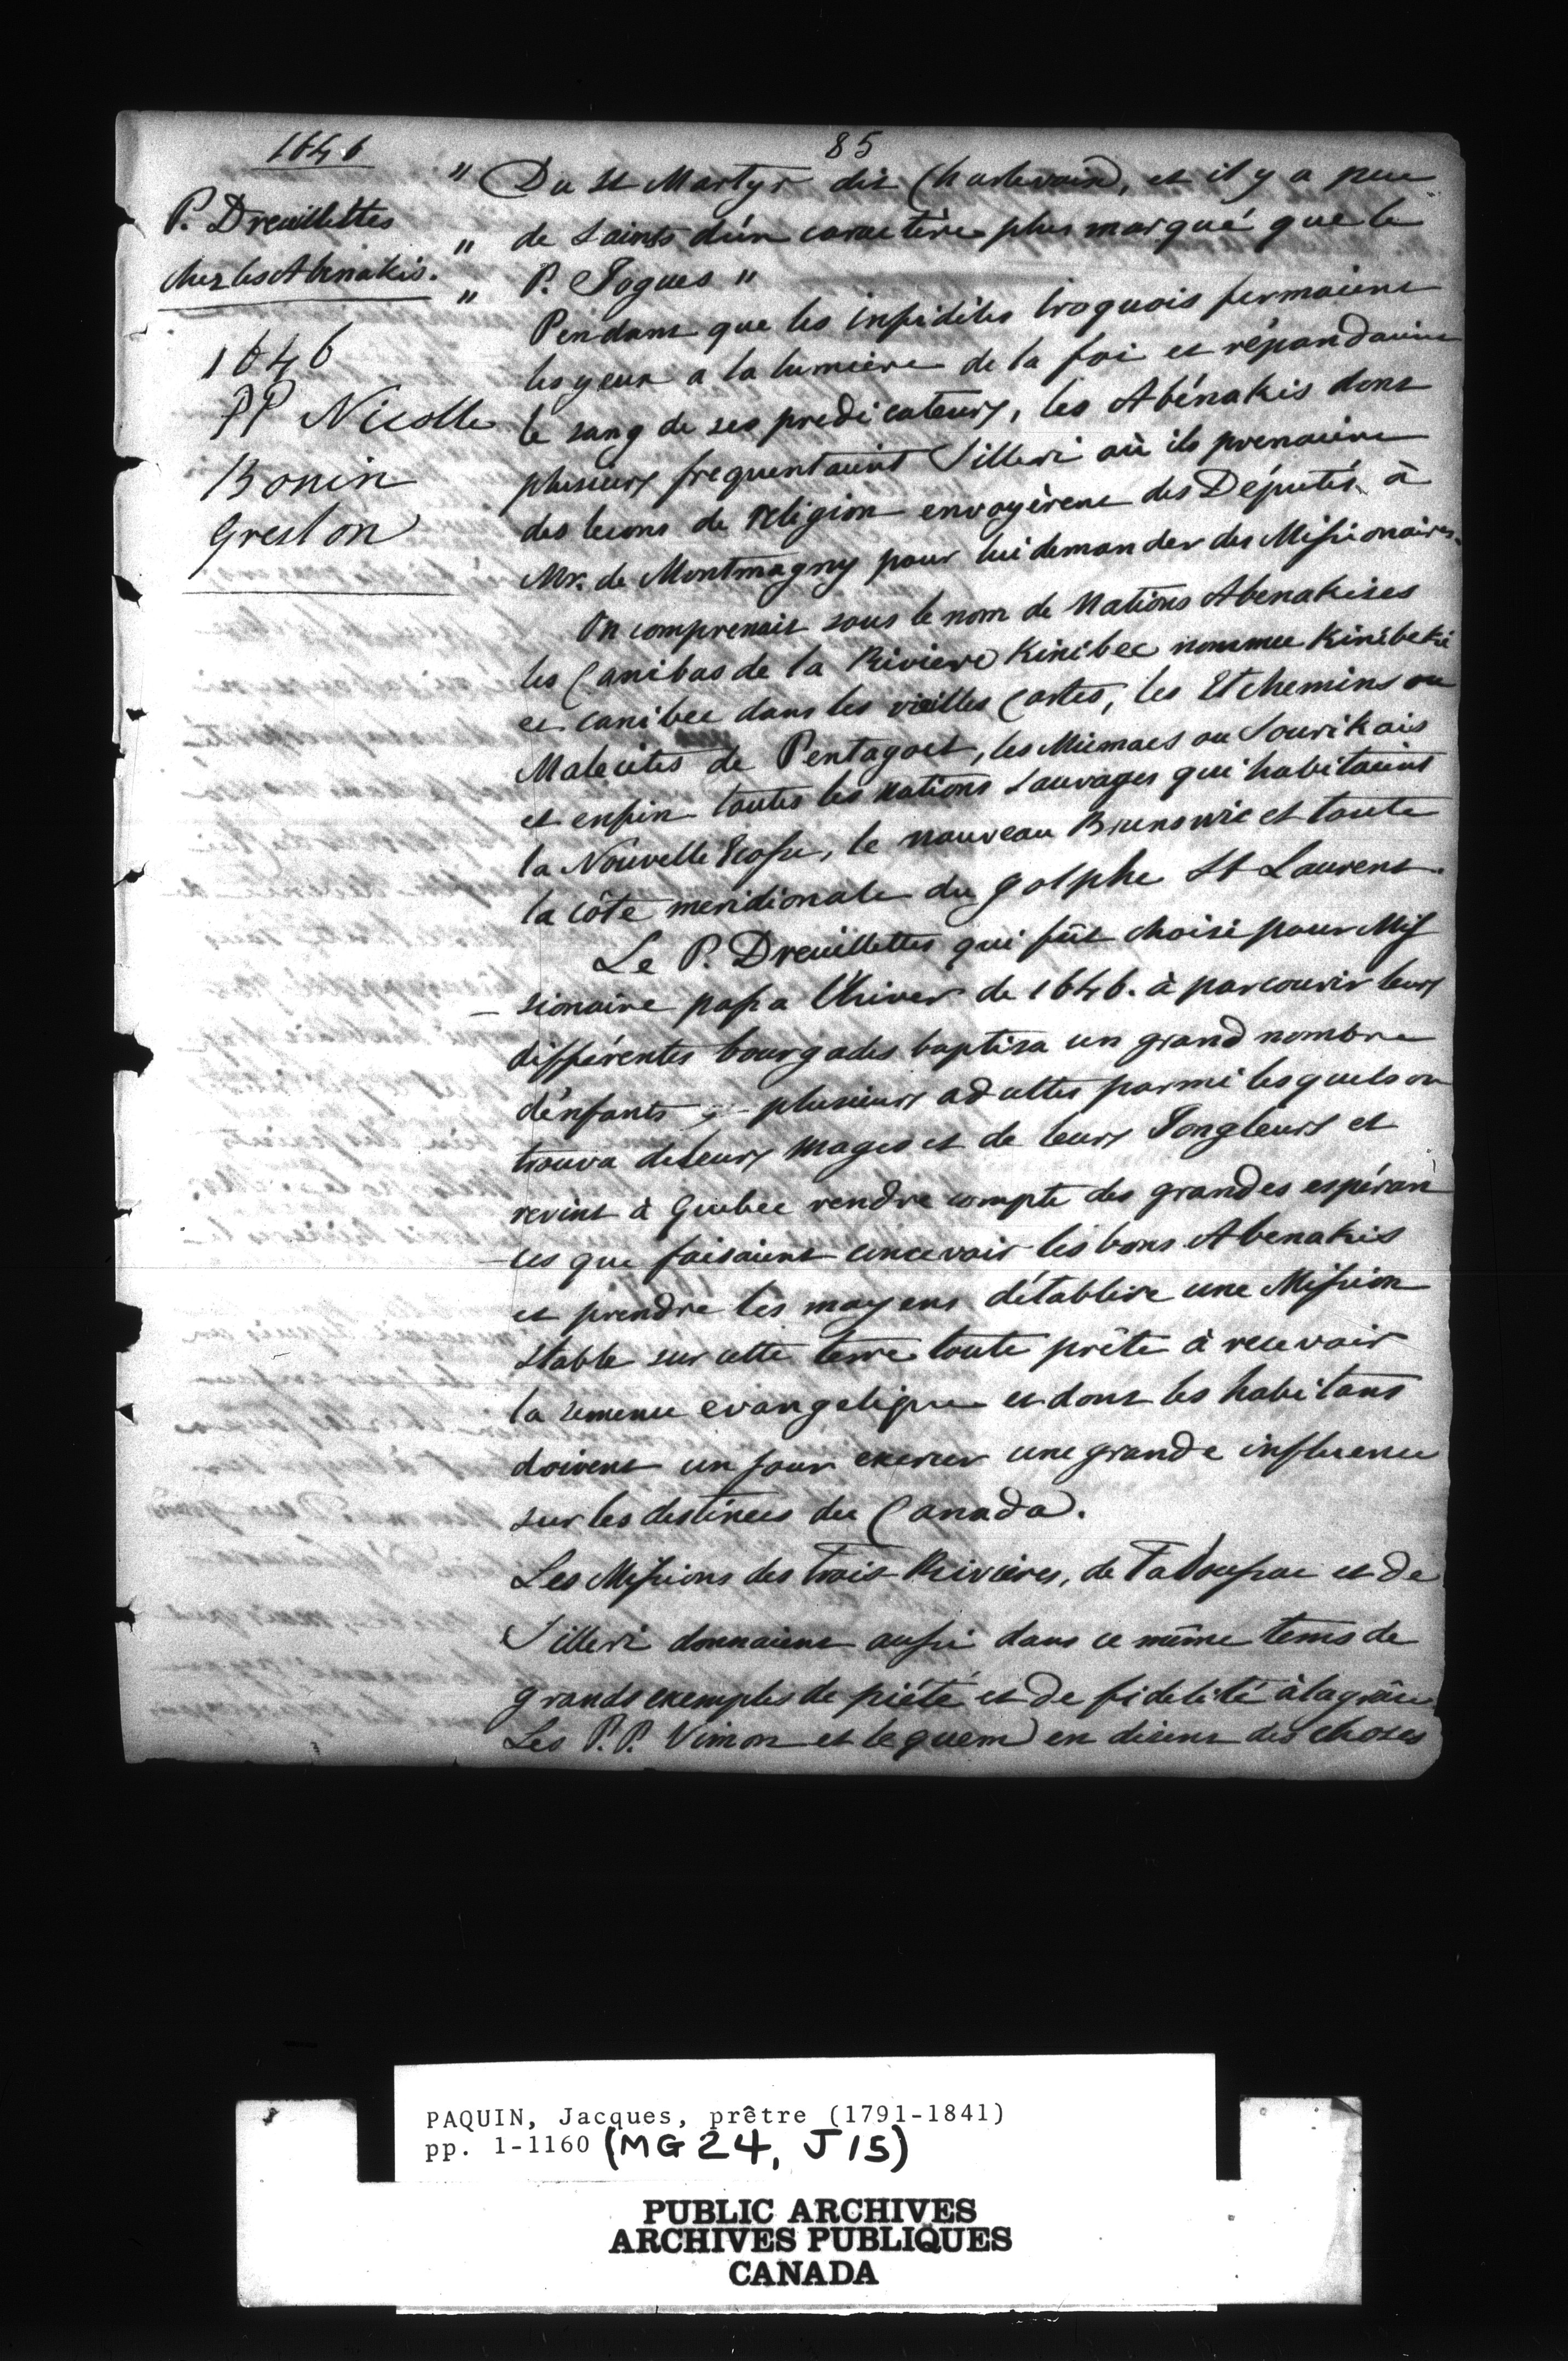 1646
85
P. Dreuillettes
chez les Abenakis.
1646
PP Nicolle
Bonin
Greslon
" Du St Martyr dit Charlevoix, et il y a peu
" de saints d'un caractère plus marqué que le
" P. Jogues "
Pendant que les infidèles Iroquois fermaient
les yeux a la lumiere de la foi et répandaient
le sang de ses predicateurs, les Abénakis dont
plusieurs frequentaient Silleri où ils prenaient
des lecons de religion envoyèrent des Députés à
Mr. de Montmagny pour lui demander des Missionaires.
On comprenait sous le nom de Nations Abenakises
les Canibas de la Riviere Kinibec nommée Kinibeki
et canibec dans les vieilles Cartes, les Etchemins ou
Malecites de Pentagoet, les Micmacs ou Sourikois
et enfin toutes les nations Sauvages qui habitaient
la Nouvelle Ecosse, le nouveau Brunswic et toute
la côte meridionale du golphe St Laurent.
Le P. Dreuillettes qui fût choisi pour Mis
- sionaire passa l'hiver de 1646. à parcourir leurs
différentes bourgades baptisa un grand nombre
d'enfants plusieurs adultes parmi lesquels on
trouva de leurs mages et de leurs Jongleurs et
revint à Quebec rendre compte des grandes espéran
- ces que faisaient concevoir les bons Abenakis
et prendre les moyens d'établire une Mission
stable sur cette terre toute prête à recevoir
la semence evangelique et dont les habitans
doivent un jour exercer une grande influence
sur les destinées du Canada.
Les Missions des trois Rivieres, de Tadoussac et de
Silleri donnaient aussi dans ce même tems de
grands exemples de piété et de fidelité à la grâce
Les P.P. Vimon et lequem en disent des choses
PAQUIN, Jacques, prêtre (1791-1841)
pp. 1-1160 (MG 24, J 15)
PUBLIC ARCHIVES
ARCHIVES PUBLIQUES
CANADA